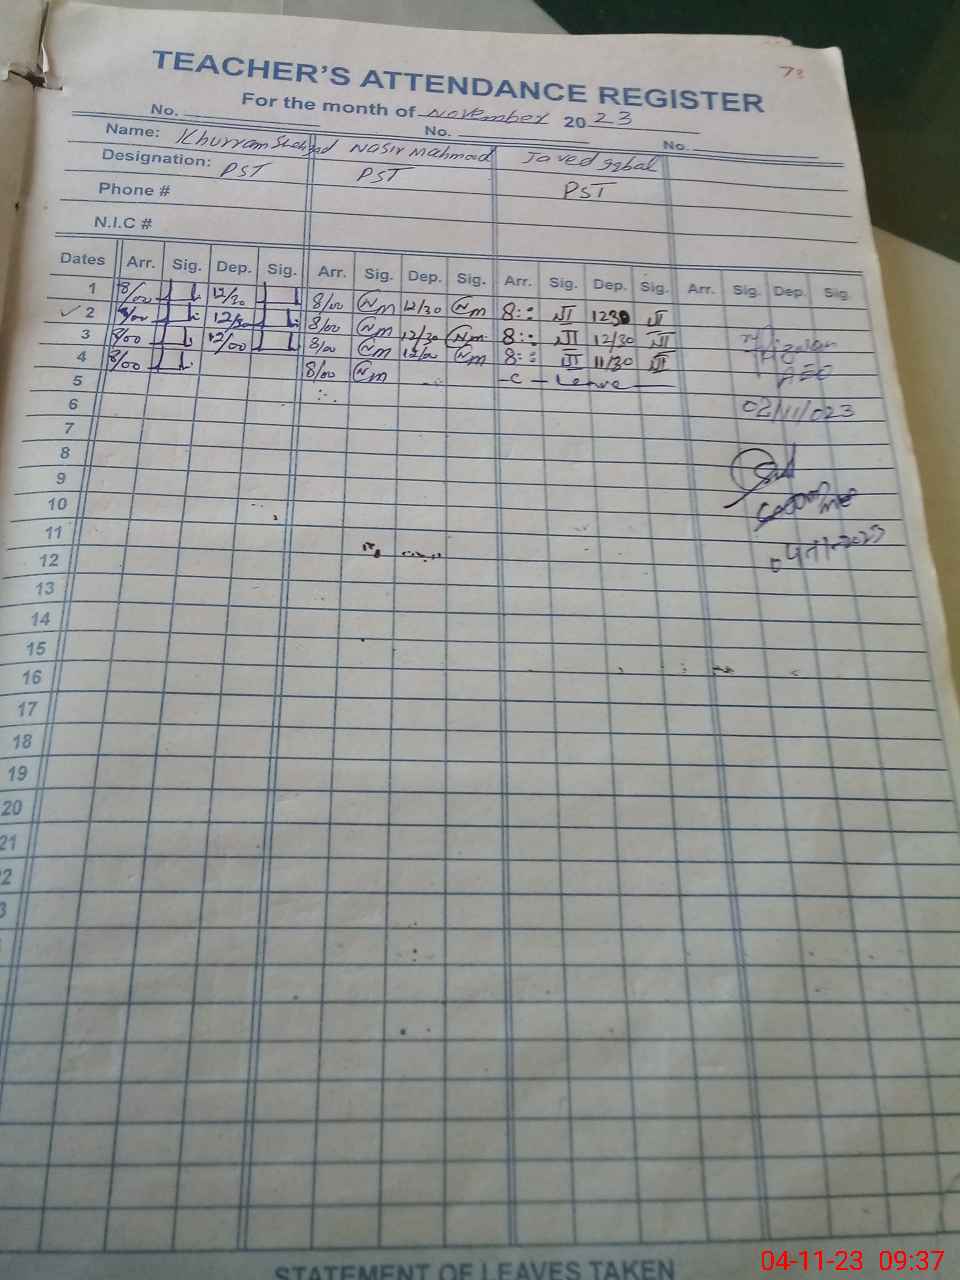 73
TEACHER'S ATTENDANCE REGISTER
For the month of November 2023
No. No. No.
Name: Khurram Shahzad Nasir Mahmood Javed Iqbal
Designation: PST PST PST
Phone #
N.I.C #
Dates Arr. Sig. Dep. Sig. Arr. Sig. Dep. Sig. Arr. Sig. Dep. Sig. Arr. Sig. Dep. Sig.
1 8/00 12/30 8/00 Nm 12/30 Nm 8:: JI 1230 JI
2 8/00 12/30 8/00 Nm 12/30 Nm 8:: JI 12/30 JI
3 8/00 12/00 8/00 Nm 12/00 Nm 8:: JI 11/30 JI
4 8/00 8/00 Nm - C - Leave
AEO
5
6 02/11/023
7
8
9
10
11
04-11-2023
12
13
14
15
16
17
18
19
20
21
2
3
STATEMENT OF LEAVES TAKEN
04-11-23 09:37